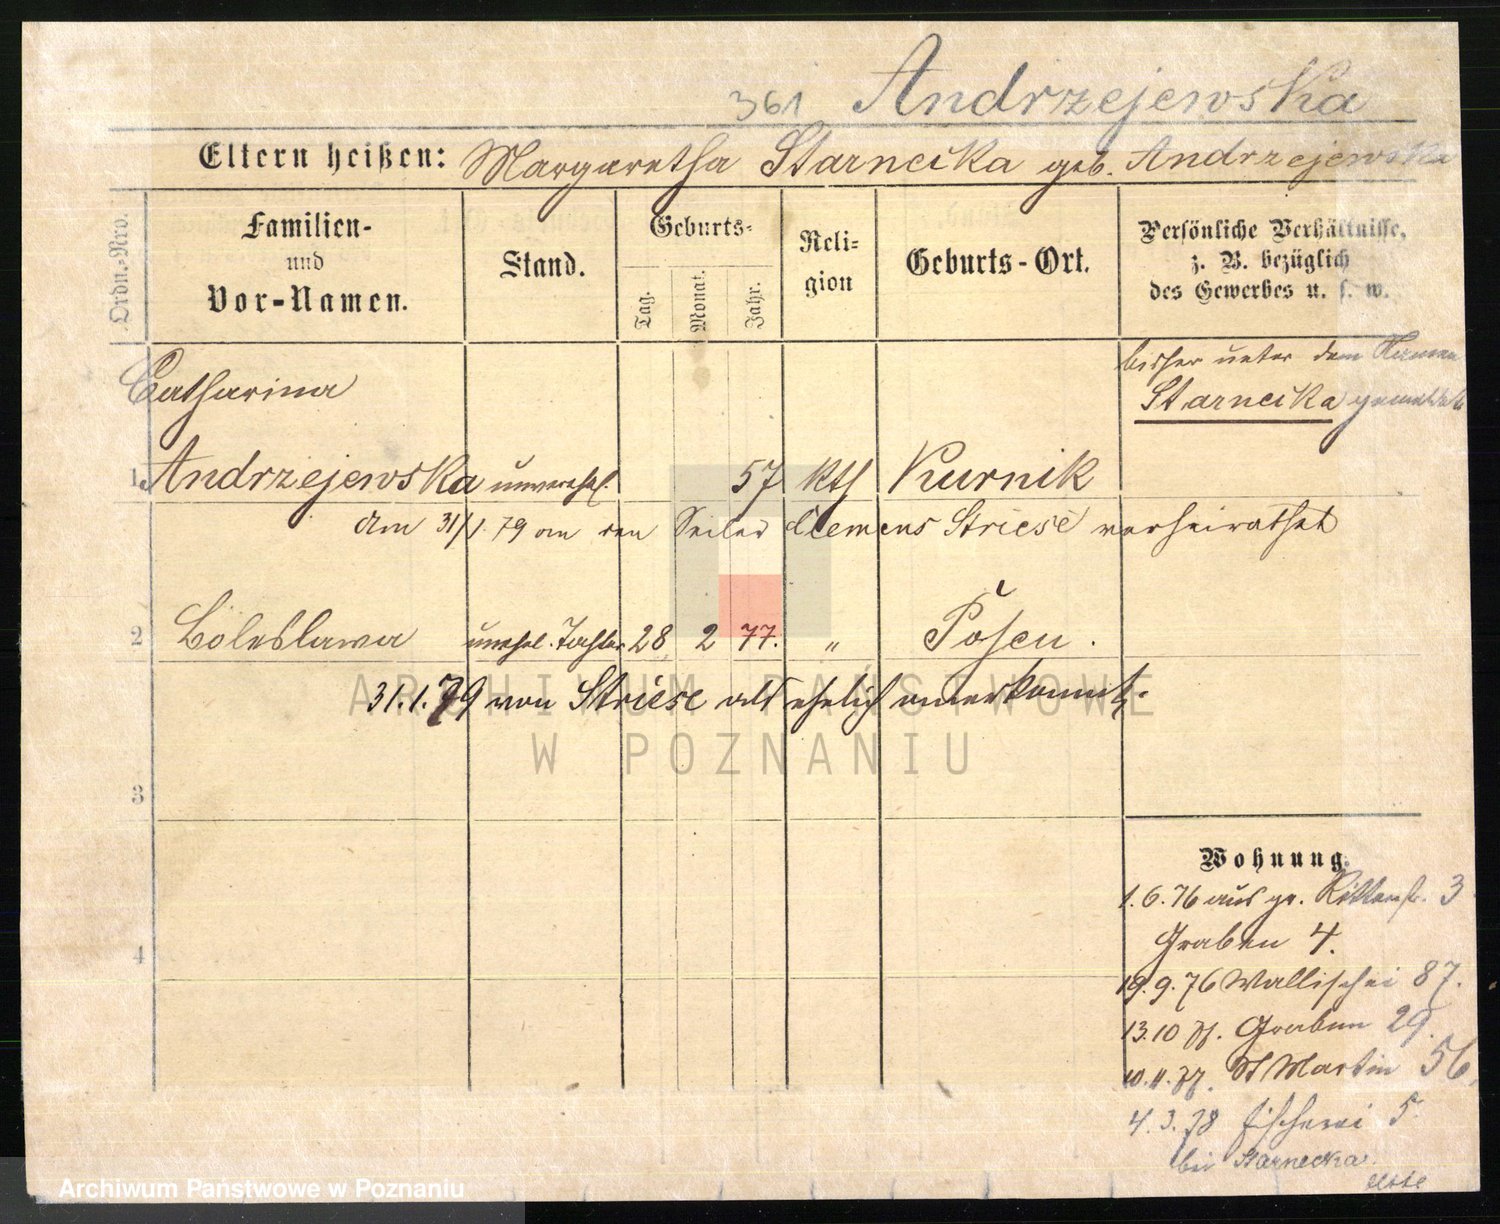 361 Andrzejewska
Eltern heißen: Margaretha Starnecka geb. Andrzejewska
Ordn.-Nro.
Familien-
und
Vor-Namen.
Stand.
Geburts-
Tag.
Monat.
Jahr.
Reli-
gion
Geburts-Ort.
Persönliche Verhältnisse,
z. B. bezüglich
des Gewerbes u. s. w.
bisher unter dem Namen
Starnecka gemeldet
Catharina
1. Andrzejewska unverehl. 57 kth Kurnik
Am 31/1.79 an den Seiler Clemens Striese verheirathet
2 Boleslawa unehel. Tochter 28 2 77. " Posen.
31.1.79 von Striese als ehelich anerkannt.
ARCHIWUM PAŃSTWOWE
W POZNANIU
3
4
Wohnung.
1.6.76 aus gr. Ritterstr. 3
Graben 4.
19.9.76 Wallischei 87.
13.10.77. Graben 29.
10.11.77. St Martin 56.
4.3.78 Fischerei 5
bei Starnecka
Archiwum Państwowe w Poznaniu